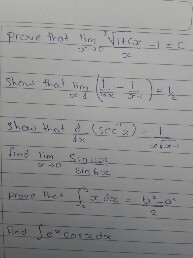 prove that lim x→0 ∛(1+cx) - 1 / x = c
Show that lim x→1 (1/lnx - 1/x-1) = 1/2
Show that d/dx (sec⁻¹x) = 1/x√x-1
find lim x→0 Sin ax / Sin bx
prove that ∫ x dx = b² - a² / 2
find ∫ eˣ cosx dx